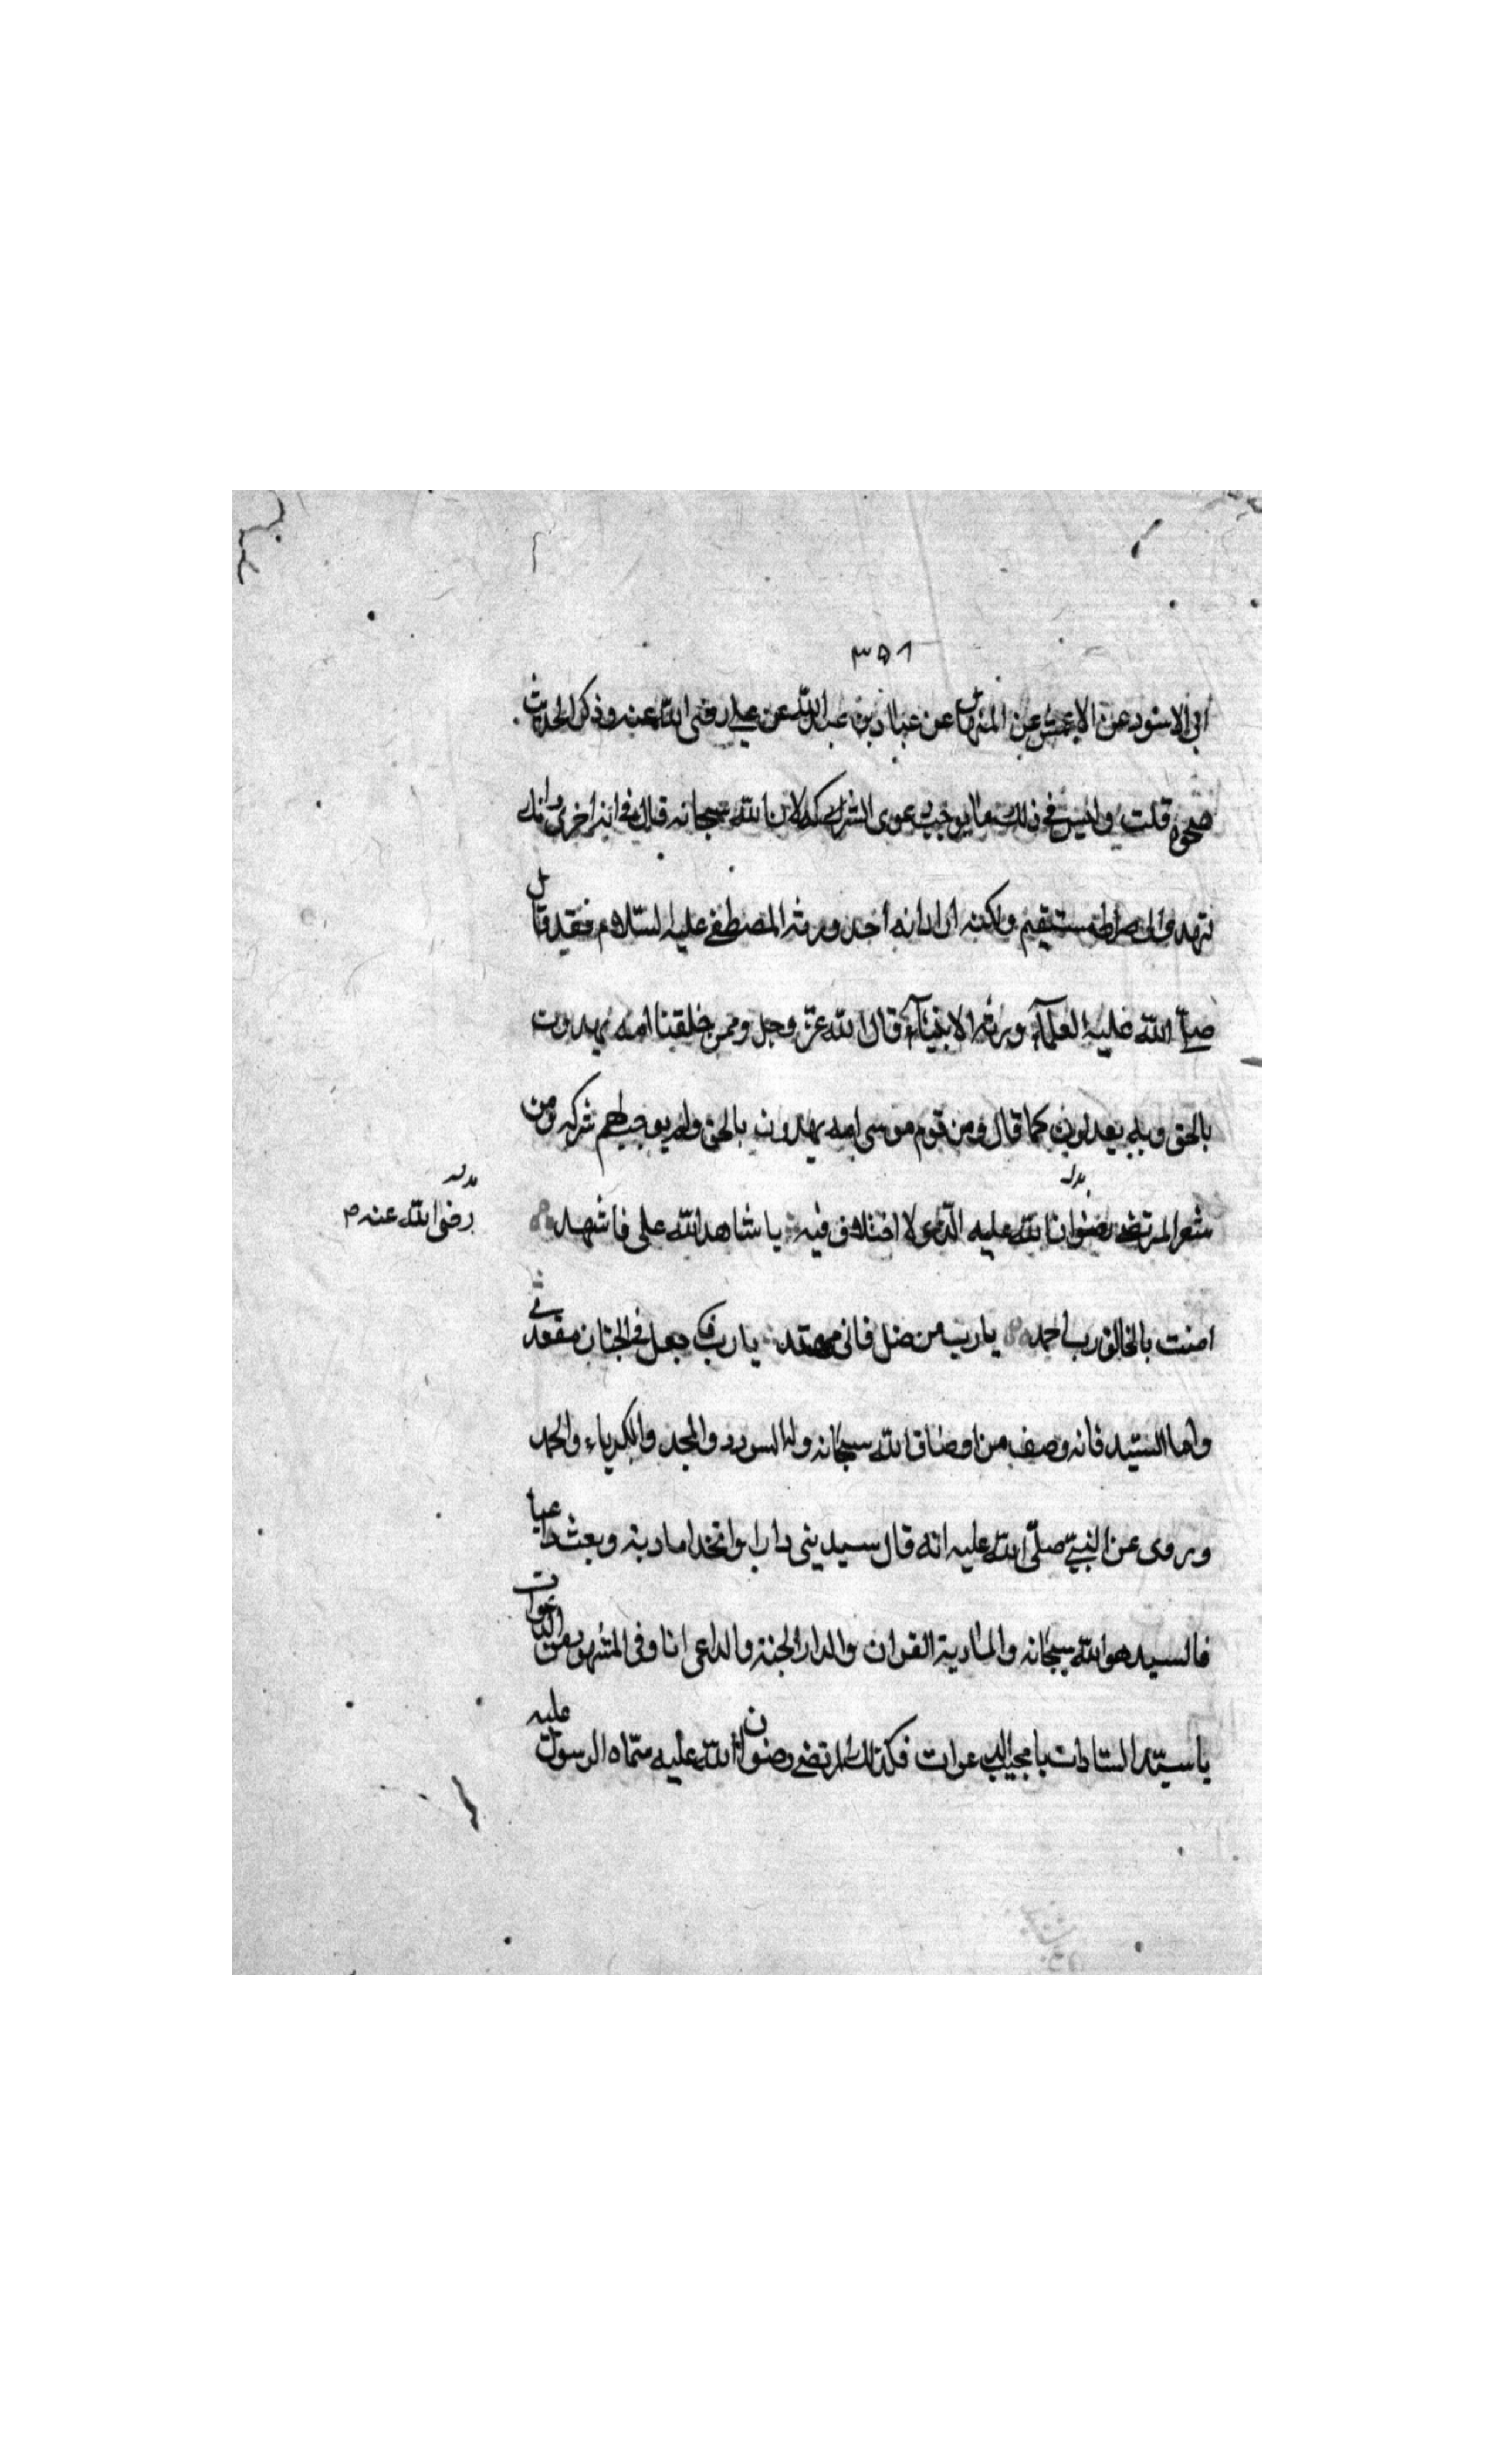 ٣٥٨
ابي الاسود عن الاعمش عن المنهال عن عباد بن عبد الله عن علي رضى الله عنه وذكر الحديث
نحوه قلت وليس في ذلك ما يوجب دعوى الشركة لان الله سبحانه قال في اية اخرى وانك
تهدي الى صراط مستقيم ولكنه اراد انه احد ورثة المصطفى عليه السلام فقد قال
صلى الله عليه العلمآء ورثة الانبيآء قال الله عز وجل وممن خلقنا امه يهدون
بالحق وبه يعدلون كما قال ومن قوم موسى امه يهدون بالحق ولم يوجب لهم شركه ومن
شعر المرتضى رضوان الله عليه الذى لا اختلاف فيه يا شاهد الله على فاشهد
رضى الله عنه
امنت بالخالق رب احمد يا رب من ضل فانى مهتد يا رب فاجعل في الجنان مقعدي
واما السيد فانه وصف من اوصاف الله سبحانه وله السودد والمجد والكبرياء والحمد
وروى عن النبي صلى الله عليه انه قال سيد بنى دارا واتخذ مادبة وبعث داعيا
فالسيد هو الله سبحانه والمادبة القران والدار الجنة والداعى انا وفى المشهور من الدعوات
يا سيد السادات يا مجيب الدعوات فكذلك المرتضى رضوان الله عليه سماه الرسول عليه